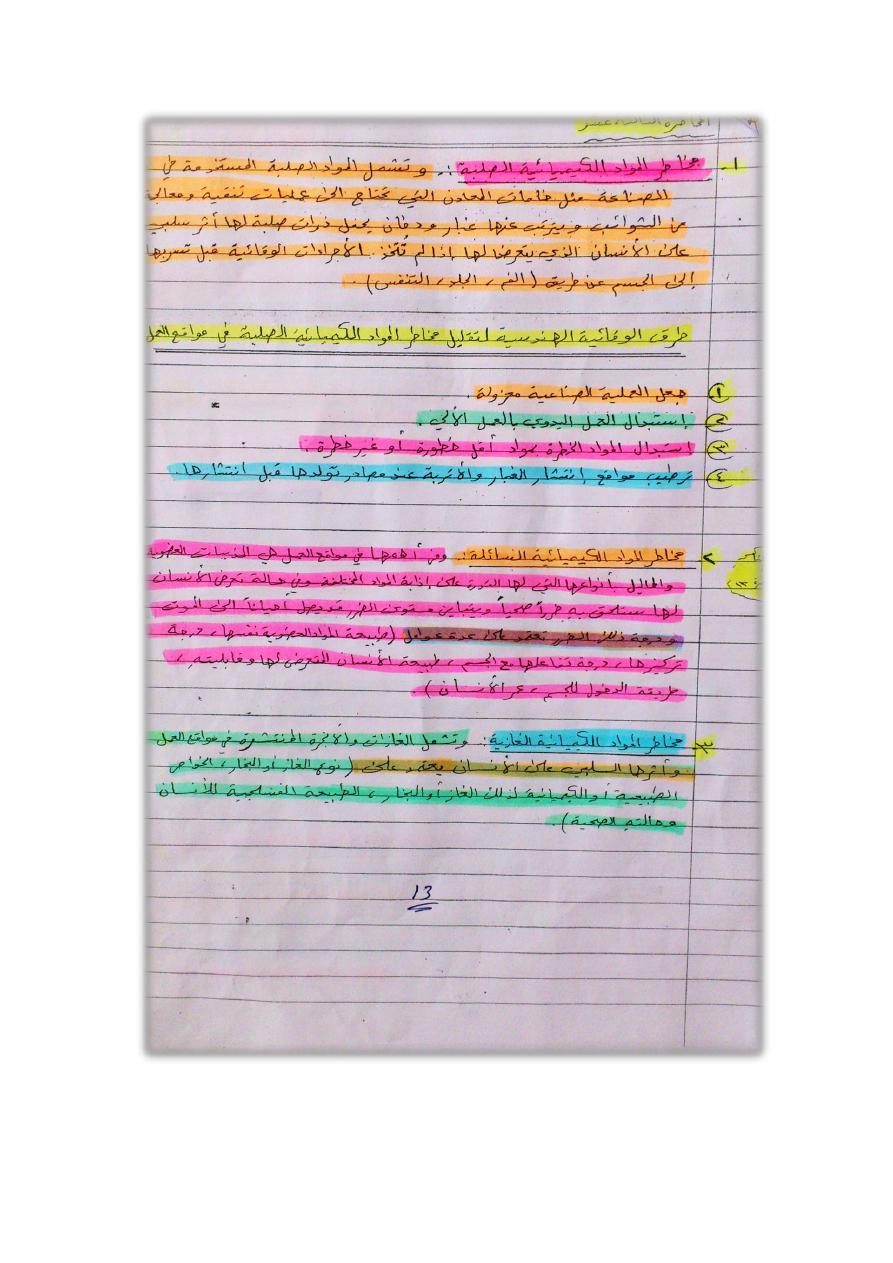 المحاضرة الثالثة عشر
١- مخاطر المواد الكيميائية الصلبة :. وتشمل المواد الصلبة المستخدمة في
الصناعة مثل خامات المعادن التي تحتاج الى عمليات تنقية ومعالجة
من الشوائب ويترتب عنها غبار ودخان يحمل ذرات صلبة لها أثر سلبي
على الأنسان الذي يتعرض لها إذا لم تُتخذ الأجراءات الوقائية قبل تسربها
إلى الجسم عن طريق (الفم ، الجلد ، التنفس) .
طرق الوقائية الهندسية لتقليل مخاطر المواد الكيميائية الصلبة في مواقع العمل
١ جعل العملية الصناعية معزولة .
٢ إستبدال العمل اليدوي بالعمل الألي .
٣ استبدال المواد الخطرة بمواد أقل خطورة أو غير خطرة .
٤ ترطيب مواقع إنتشار الغبار والأتربة عند مصادر تولدها قبل انتشارها .
٢ مخاطر المواد الكيميائية السائلة :. ومن أهمها في مواقع العمل هي المذيبات العضوية
والمحاليل بأنواعها التي لها القدرة على إذابة المواد المختلفة وفي حالة تعرض الأنسان
لها ستلحق به ضرراً صحياً ويتباين مستوى الضرر قد يصل أحياناً الى الموت
ودرجة ذلك الضرر تعتمد على عدة عوامل (طبيعة المواد العضوية نفسها ، درجة
تركيزها ، درجة تفاعلها مع الجسم ، طبيعة الأنسان المتعرض لها وقابليته ،
طريقة الدخول للجسم ، عمر الأنسان)
٣- مخاطر المواد الكيميائية الغازية :. وتشمل الغازات والأبخرة المنتشرة في مواقع العمل
وأثرها السلبي على الأنسان يعتمد على (نوع الغاز أو البخار ، الخواص
الطبيعية أو الكيميائية لذلك الغاز أو البخار ، الطبيعة الفسلجية للأنسان
وحالته الصحية) .
13